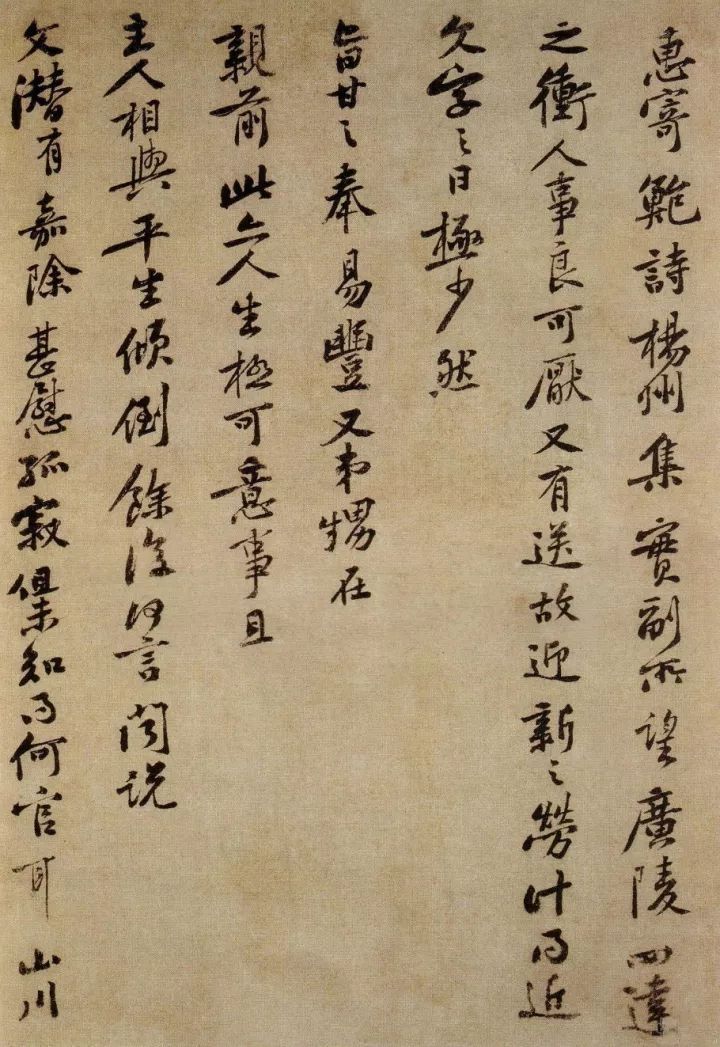 惠寄鲍詩楊州集實副所望廣陵四達
之衝人事良可厭又有送故迎新之勞計得近
文字之日極少然
旨甘之奉易豐又弟甥在
親前此亦人生極可意事且
主人相與平生傾倒餘復何言聞說
文潛有嘉除甚慰孤寂但未知得何官耳山川